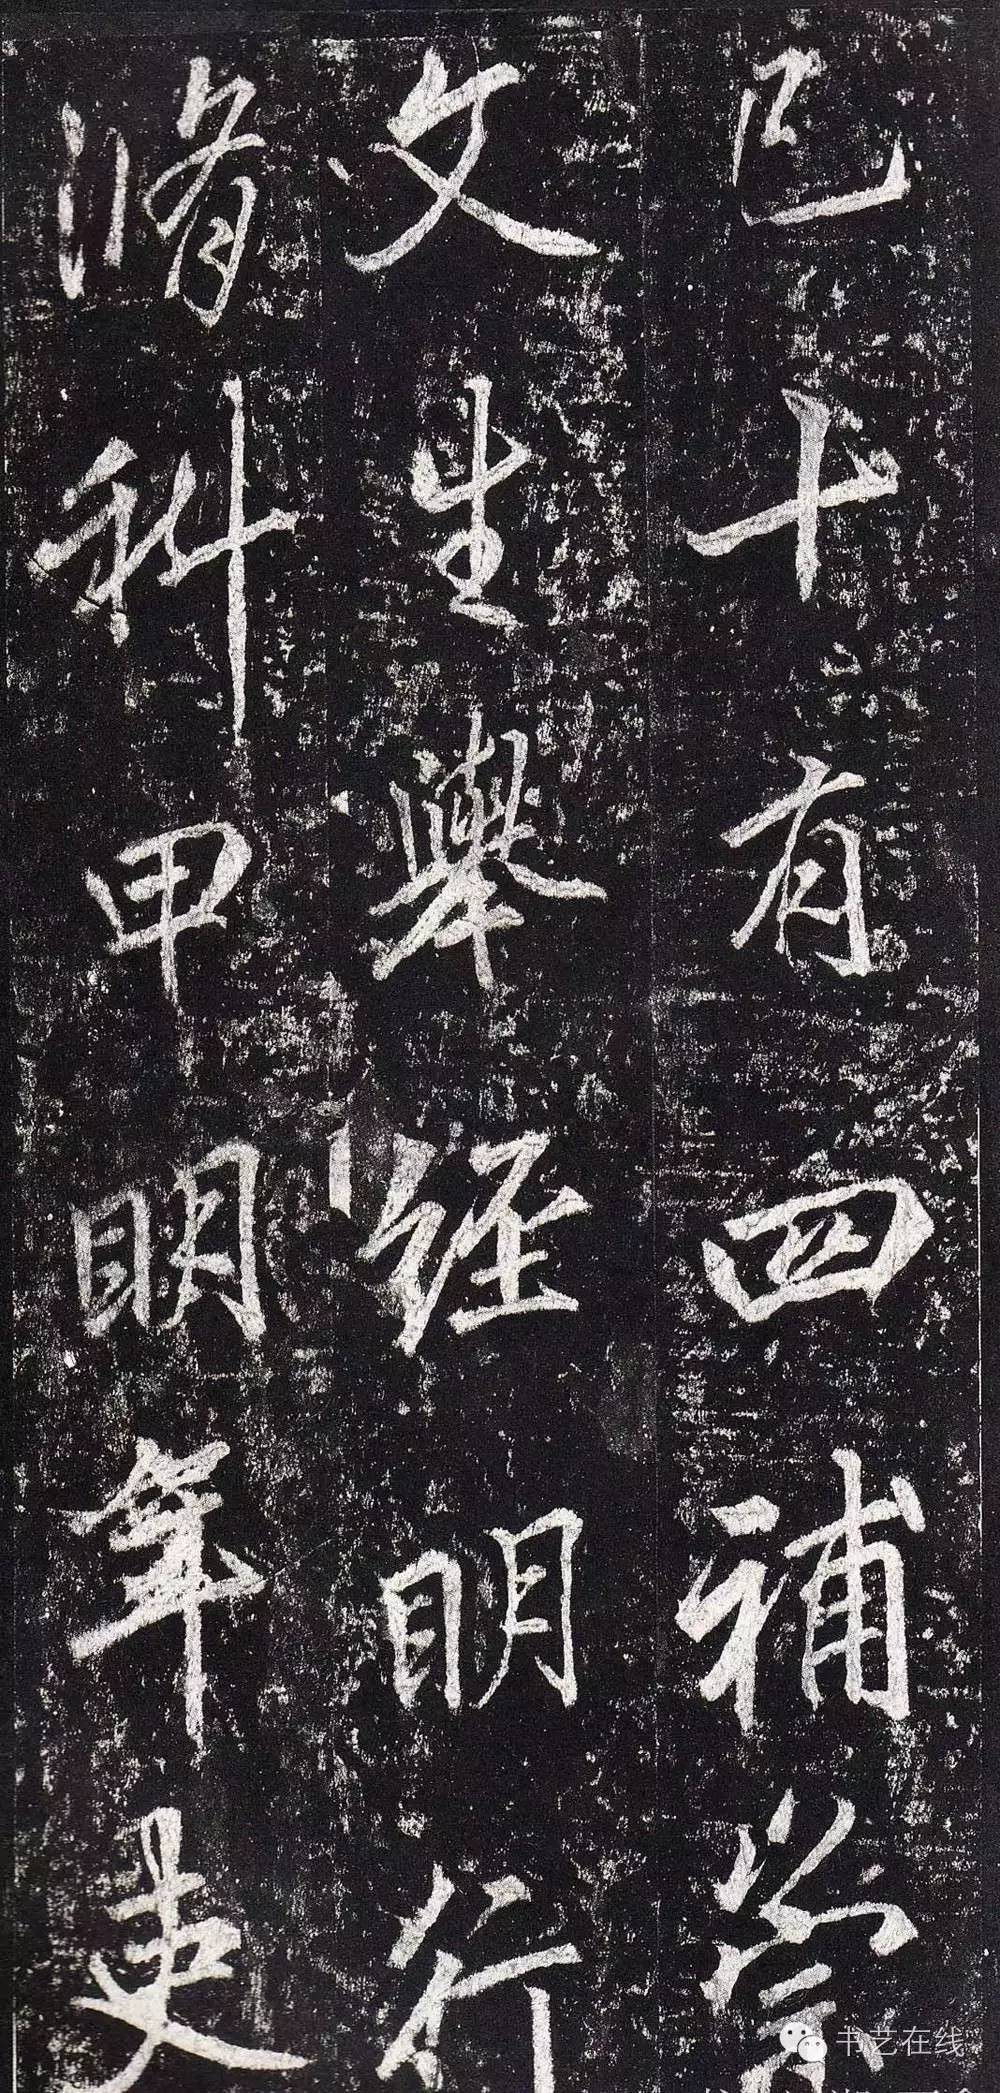 已十有四補崇
文生舉經明行
脩科甲明年吏
书艺在线